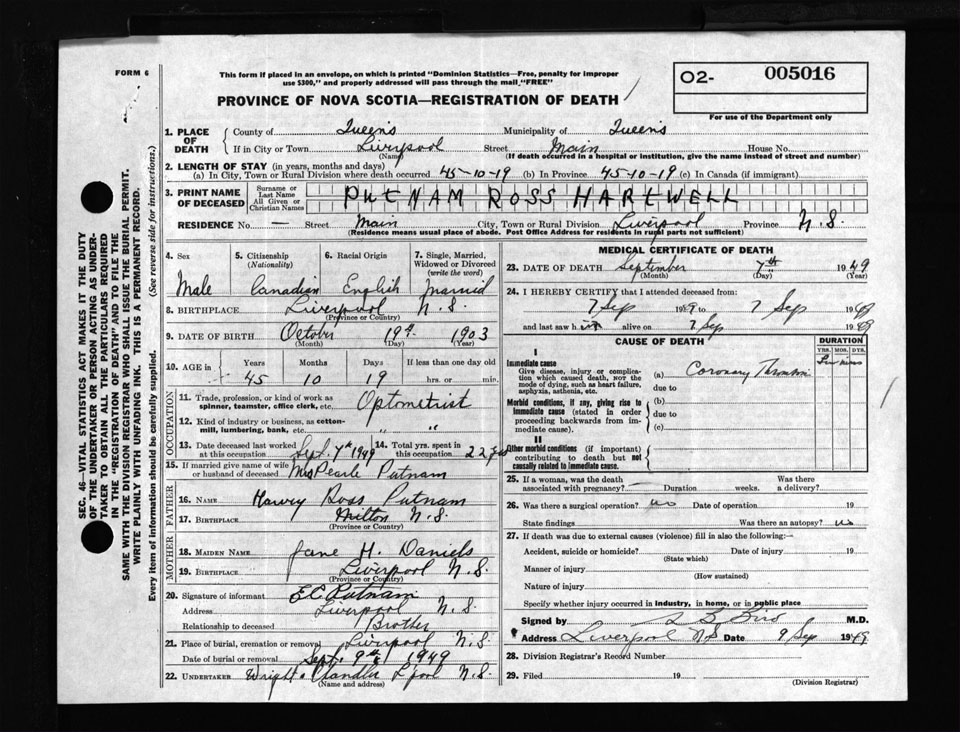 FORM 6
This form if placed in an envelope, on which is printed "Dominion Statistics—Free, penalty for improper
use $300," and properly addressed will pass through the mail "FREE"
O2- 005016
For use of the Department only
PROVINCE OF NOVA SCOTIA—REGISTRATION OF DEATH
SEC. 46—VITAL STATISTICS ACT MAKES IT THE DUTY
OF THE UNDERTAKER OR PERSON ACTING AS UNDER-
TAKER TO OBTAIN ALL THE PARTICULARS REQUIRED
IN THE "REGISTRATION OF DEATH" AND TO FILE THE
SAME WITH THE DIVISION REGISTRAR WHO SHALL ISSUE THE BURIAL PERMIT.
WRITE PLAINLY WITH UNFADING INK. THIS IS A PERMANENT RECORD.
Every item of information should be carefully supplied. (See reverse side for instructions.)
1. PLACE OF DEATH
County of Queens Municipality of Queens
If in City or Town Liverpool Street Main House No.
(Name) (If death occurred in a hospital or institution, give the name instead of street and number)
2. LENGTH OF STAY (in years, months and days)
(a) In City, Town or Rural Division where death occurred 45-10-19 (b) In Province 45-10-19 (c) In Canada (if immigrant)
3. PRINT NAME OF DECEASED
Surname or Last Name
All Given or Christian Names
PUTNAM ROSS HARTWELL
RESIDENCE No. — Street Main City, Town or Rural Division Liverpool Province N.S.
(Residence means usual place of abode. Post Office Address for residents in rural parts not sufficient)
4. Sex 5. Citizenship (Nationality) 6. Racial Origin 7. Single, Married, Widowed or Divorced (write the word)
Male Canadian English Married
8. BIRTHPLACE Liverpool N.S.
(Province or Country)
9. DATE OF BIRTH October 19th 1903
(Month) (Day) (Year)
10. AGE in Years Months Days If less than one day old
45 10 19 hrs. or min.
OCCUPATION
11. Trade, profession, or kind of work as
spinner, teamster, office clerk, etc. Optometrist
12. Kind of industry or business, as cotton-
mill, lumbering, bank, etc. " "
13. Date deceased last worked at this occupation Sept. 7th 1949 14. Total yrs. spent in this occupation 22 yrs
15. If married give name of wife or husband of deceased Mrs Pearle Putnam
FATHER
16. NAME Harvey Ross Putnam
17. BIRTHPLACE Milton N.S.
(Province or Country)
MOTHER
18. MAIDEN NAME Jane H. Daniels
19. BIRTHPLACE Liverpool N.S.
(Province or Country)
20. Signature of informant E C Putnam
Address Liverpool N.S.
Relationship to deceased Brother
21. Place of burial, cremation or removal Liverpool N.S
Date of burial or removal Sept. 9th 1949
22. UNDERTAKER Wright & Chandler L'pool N.S.
(Name and address)
MEDICAL CERTIFICATE OF DEATH
23. DATE OF DEATH September 7th 1949
(Month) (Day) (Year)
24. I HEREBY CERTIFY that I attended deceased from:
7 Sep 1949 to 7 Sep 1949
and last saw him alive on 7 Sep 1949
CAUSE OF DEATH DURATION
YRS. MOS. DYS.
I
Immediate cause
Give disease, injury or complica-
tion which caused death, not the
mode of dying, such as heart failure,
asphyxia, asthenia, etc.
(a) Coronary Thrombosis
due to
Morbid conditions, if any, giving rise to
immediate cause (stated in order
proceeding backwards from im-
mediate cause).
(b)
due to
(c)
II
Other morbid conditions (if important)
contributing to death but not
causally related to immediate cause.
25. If a woman, was the death Was there
associated with pregnancy? — Duration weeks. a delivery?
26. Was there a surgical operation? no Date of operation 19
State findings Was there an autopsy? no
27. If death was due to external causes (violence) fill in also the following:—
Accident, suicide or homicide? Date of injury 19
(State which)
Manner of injury
(How sustained)
Nature of injury
Specify whether injury occurred in industry, in home, or in public place
Signed by M.D.
Address Liverpool NS Date 9 Sep 1949
28. Division Registrar's Record Number
29. Filed 19
(Division Registrar)